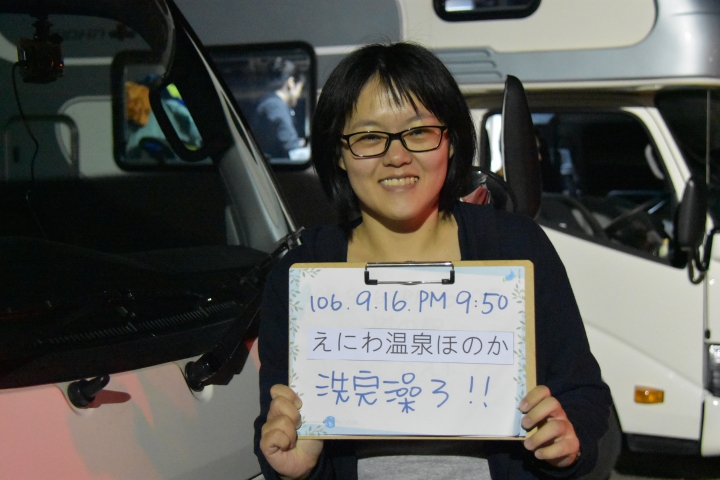 106.9.16.PM 9:50
えにわ温泉ほのか
洗完澡ろ!!